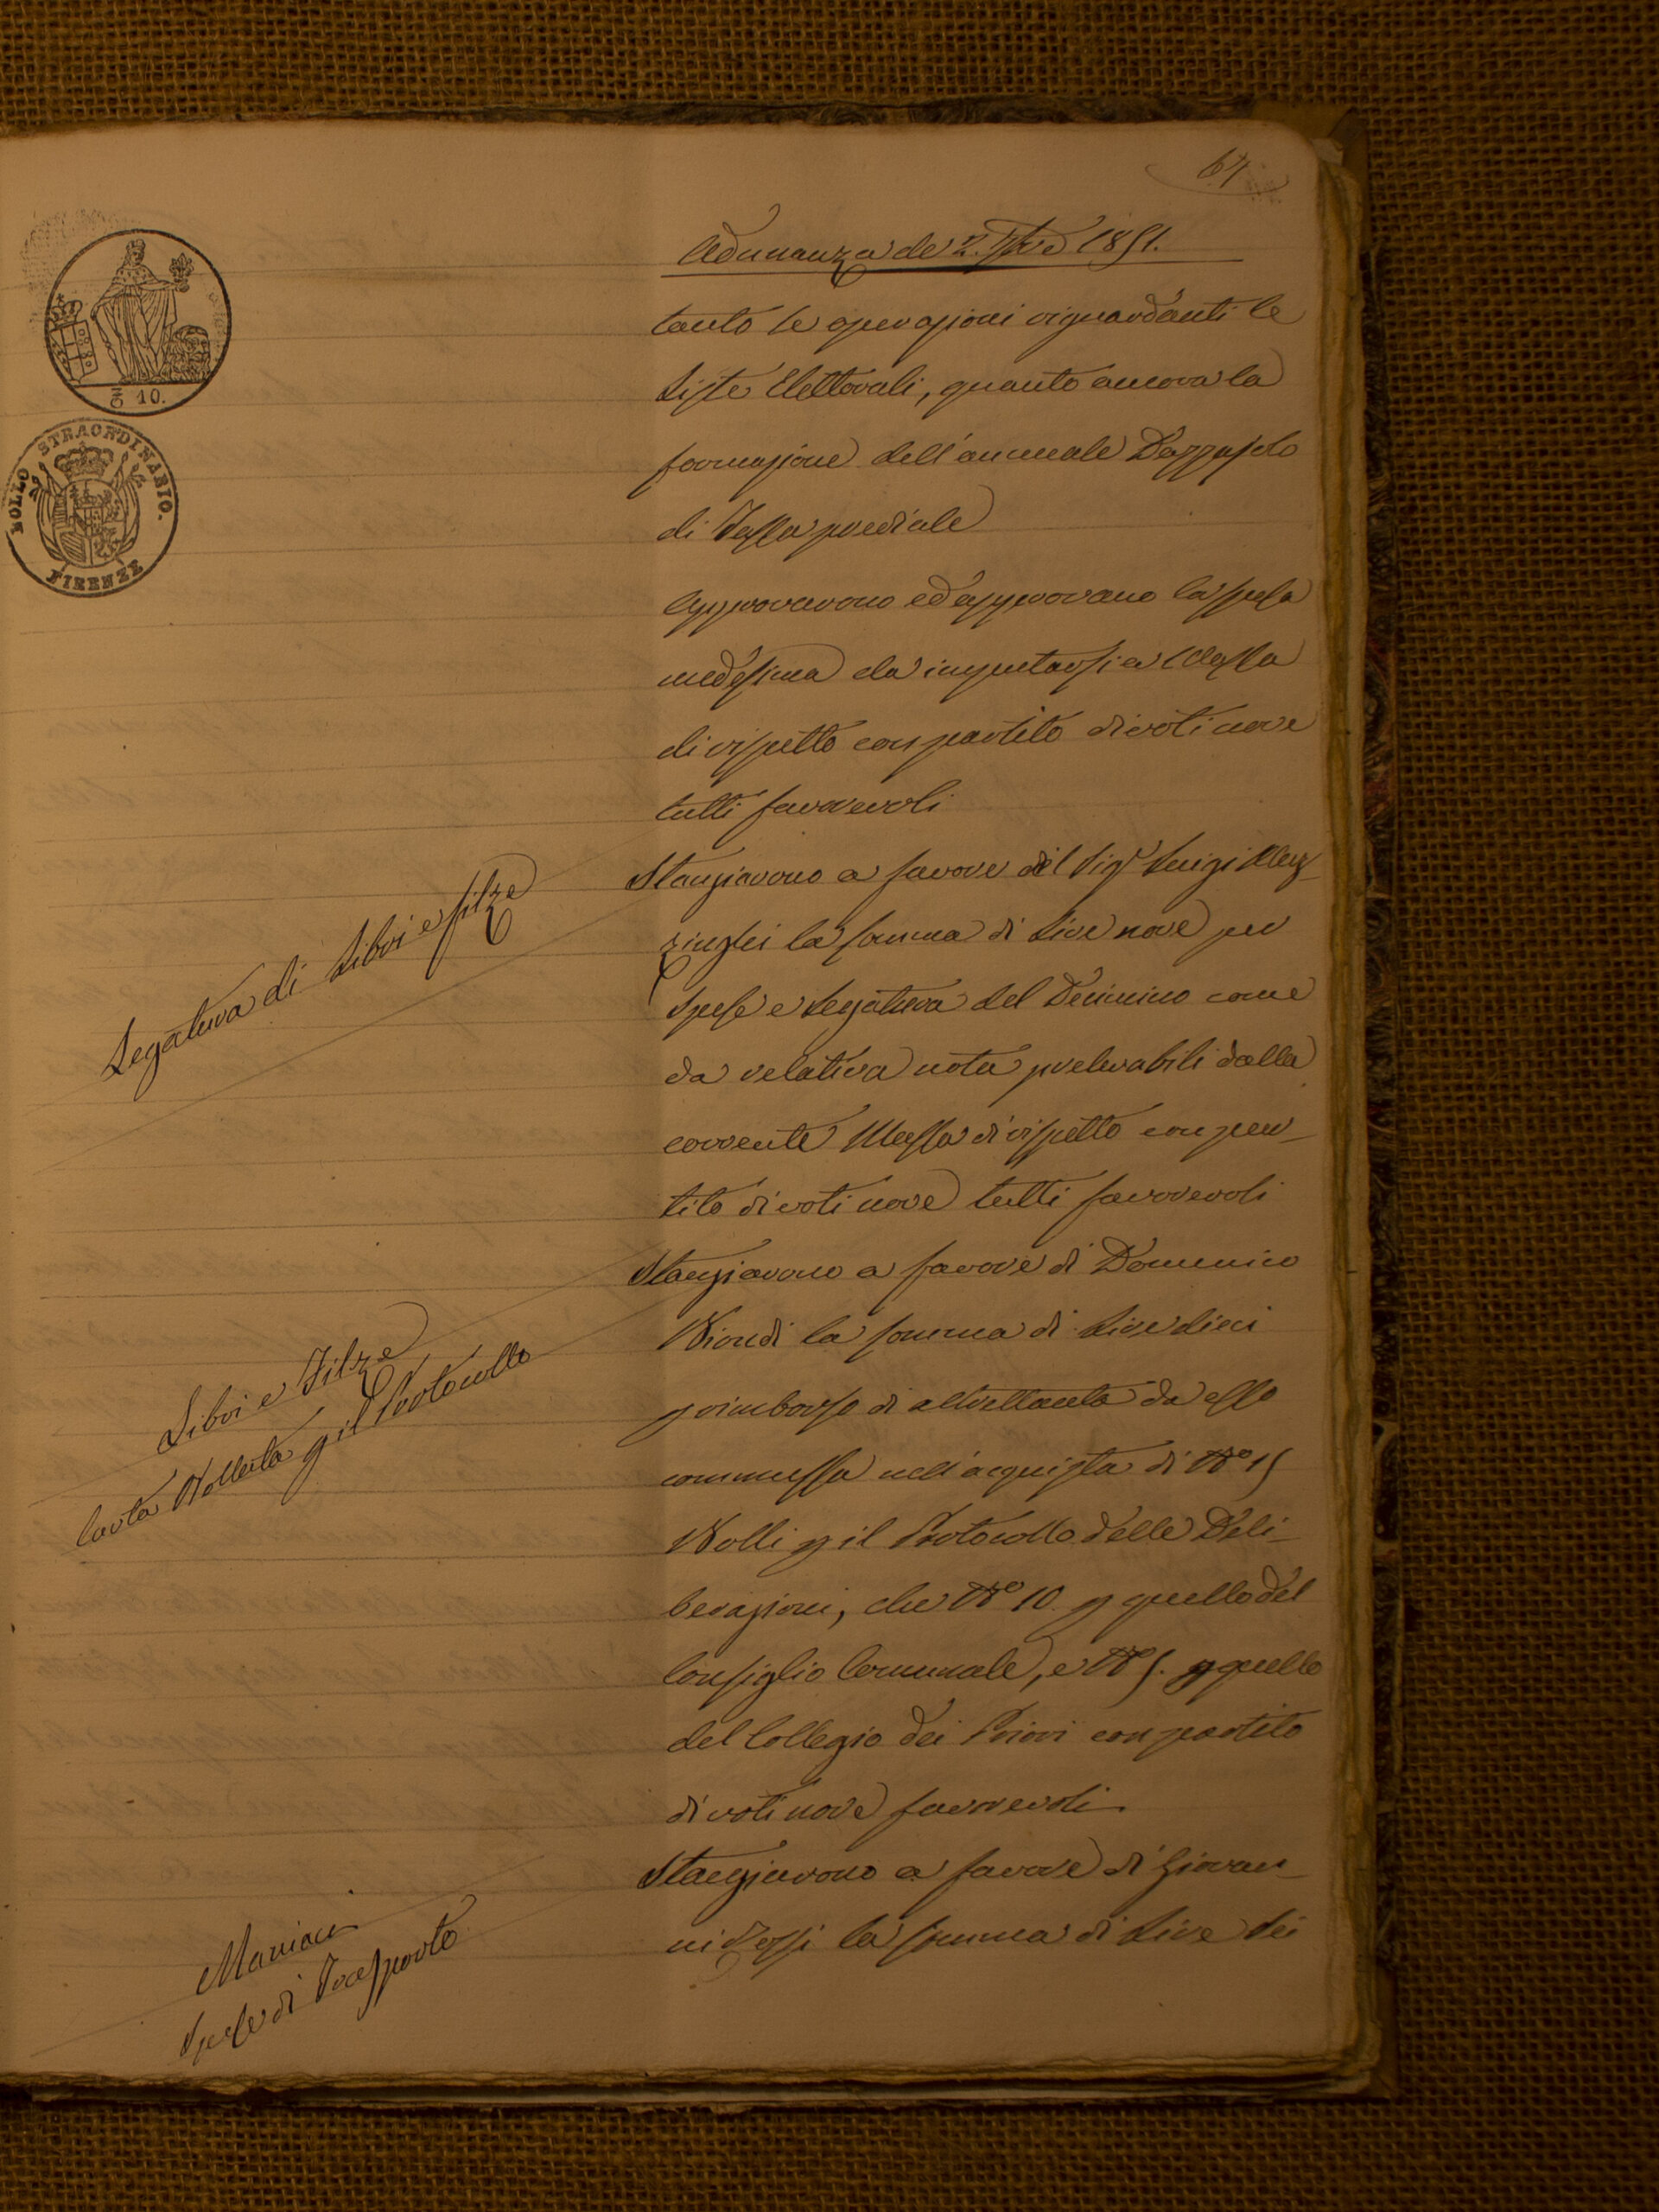 64
Adunanza de 2. 7bre 1851.
BOLLO STRAORDINARIO.
FIRENZE
10.
tanto le operazioni riguardanti le
Liste Elettorali, quanto ancora la
formazione dell'annuale Dazzajolo
di Tassa prediale
Approvarono ed approvano la spesa
medesima da imputarsi a Massa
di rispetto con partito di voti nove
tutti favorevoli
Legatura di Libri e filze
Stanziarono a favore del Sigr Luigi
la somma di Lire nove per
Spese e Legatura del Decimino come
da relativa nota prelevabili dalla
corrente Massa di rispetto con par-
tito di voti nove tutti favorevoli
Libri e Filze
Carta Bollata p il Protocollo
Stanziarono a favore di Domenico
Biondi la somma di Lire dieci
p rimborso di altrettanta da esso
commessa nell'acquisto di No 15
Bolli p il Protocollo delle Deli-
berazioni, che No 10 p quello del
Consiglio Comunale, e No 5. p quello
del Collegio dei Priori con partito
di voti nove favorevoli.
Maniaci
Spese di Trasporto
Stanziarono a favore di Giovan-
ni la somma di Lire sei